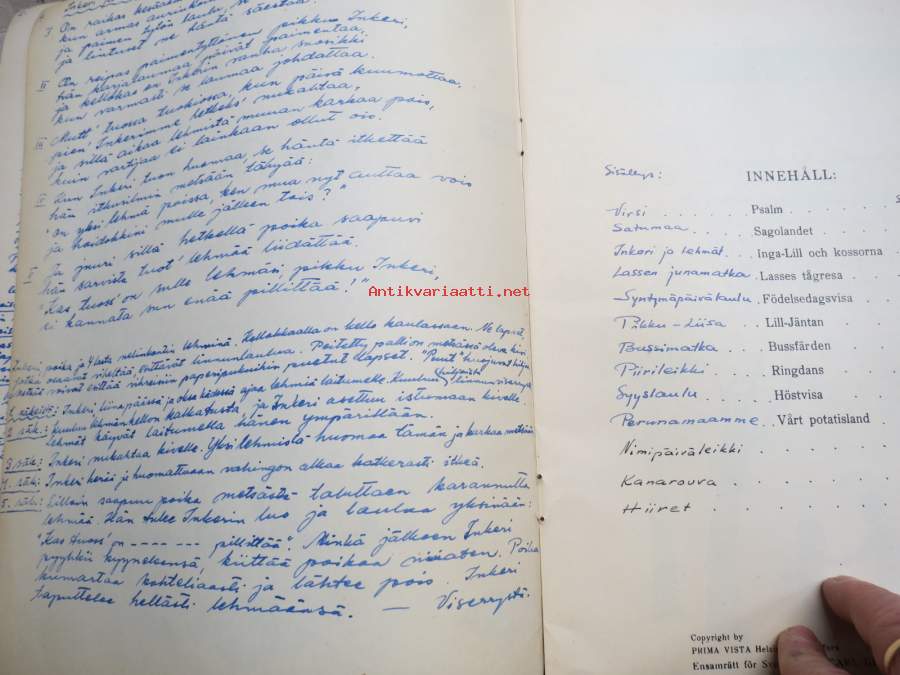 I On raikas kesäaam
kun armas aurinkoin
ja paimen tytön laulu, se
ja lintuset ne häntä säestää.
II On reipas paimentyttönen pikku Inkeri,
hän karjalaumaa päivät paimentaa,
ja kellokas on Inkerin vanha suosikki
kun varmasti se laumaa johdattaa.
III Mutt' tuossa tuokiossa, kun päivä kuumottaa,
pien' Inkerimme hetkeks' nukahtaa,
ja sillä aikaa lehmistä muuan karkaa pois,
kuin vartijaa ei lainkaan ollut ois.
IV Kun Inkeri tuon huomaa, se häntä itkettää
hän itkusilmin metsään tähyää:
"on yksi lehmä poissa, ken mua nyt auttaa vois
ja hoidokkini mulle jälleen tois?"
V Ja juuri sillä hetkellä poika saapuvi
hän sarvista tuot' lehmää liidättää.
"Kas tuoss' on sulle lehmäsi, pikku Inkeri,
ei kannata sun enää pillittää!"
Inkeri, poika ja 4 lasta nelinkontin lehminä. Kellokkaalla on kello kaulassaan. Ne lapset,
jotka osaavat viheltää, esittävät linnunlaulua. Peitetty palli on metsässä oleva kivi
metsää voivat esittää vihreisiin paperipukuihin puetut lapset. "Puut" huojuvat hiljaa
1. säkeistö: Inkeri, liina päässä ja oksa kädessä ajaa lehmiä laitumelle. Kuuluu linnun viserrystä
2. säk.: Kuuluu lehmänkellon kalkatusta, ja Inkeri asettuu istumaan kivelle
lehmät käyvät laitumella hänen ympärillään.
3 säk.: Inkeri nukahtaa kivelle. Yksi lehmistä huomaa tämän ja karkaa metsään
4. säk: Inkeri herää ja huomattuaan vahingon alkaa katkerasti itkeä.
5. säk: Silloin saapuu poika metsästä taluttaen karannutta
lehmää. Hän tulee Inkerin luo ja laulaa yksinään:
"Kas tuoss' on - - - - - - - pillittää". Minkä jälkeen Inkeri
pyyhkii kyyneleensä, kiittää poikaa niiaten. Poika
kumartaa kohteliaasti ja lähtee pois. Inkeri
taputtelee hellästi lehmäänsä. — Viserrystä.
Sisällys: INNEHÅLL:
Virsi . . . . . . Psalm
Satumaa . . . . Sagolandet
Inkeri ja lehmät . Inga-Lill och kossorna
Lassen junamatka . Lasses tågresa
Syntymäpäivälaulu . Födelsedagsvisa
Pikku-Liisa . . Lill-Jäntan
Bussimatka . . Bussfärden
Piirileikki . . . Ringdans
Syyslaulu . . . Höstvisa
Perunamaamme . Vårt potatisland
Nimipäiväleikki . . .
Kanarouva . . .
Hiiret . . .
Copyright by
PRIMA VISTA
Ensamrätt för
Antikvariaatti.net